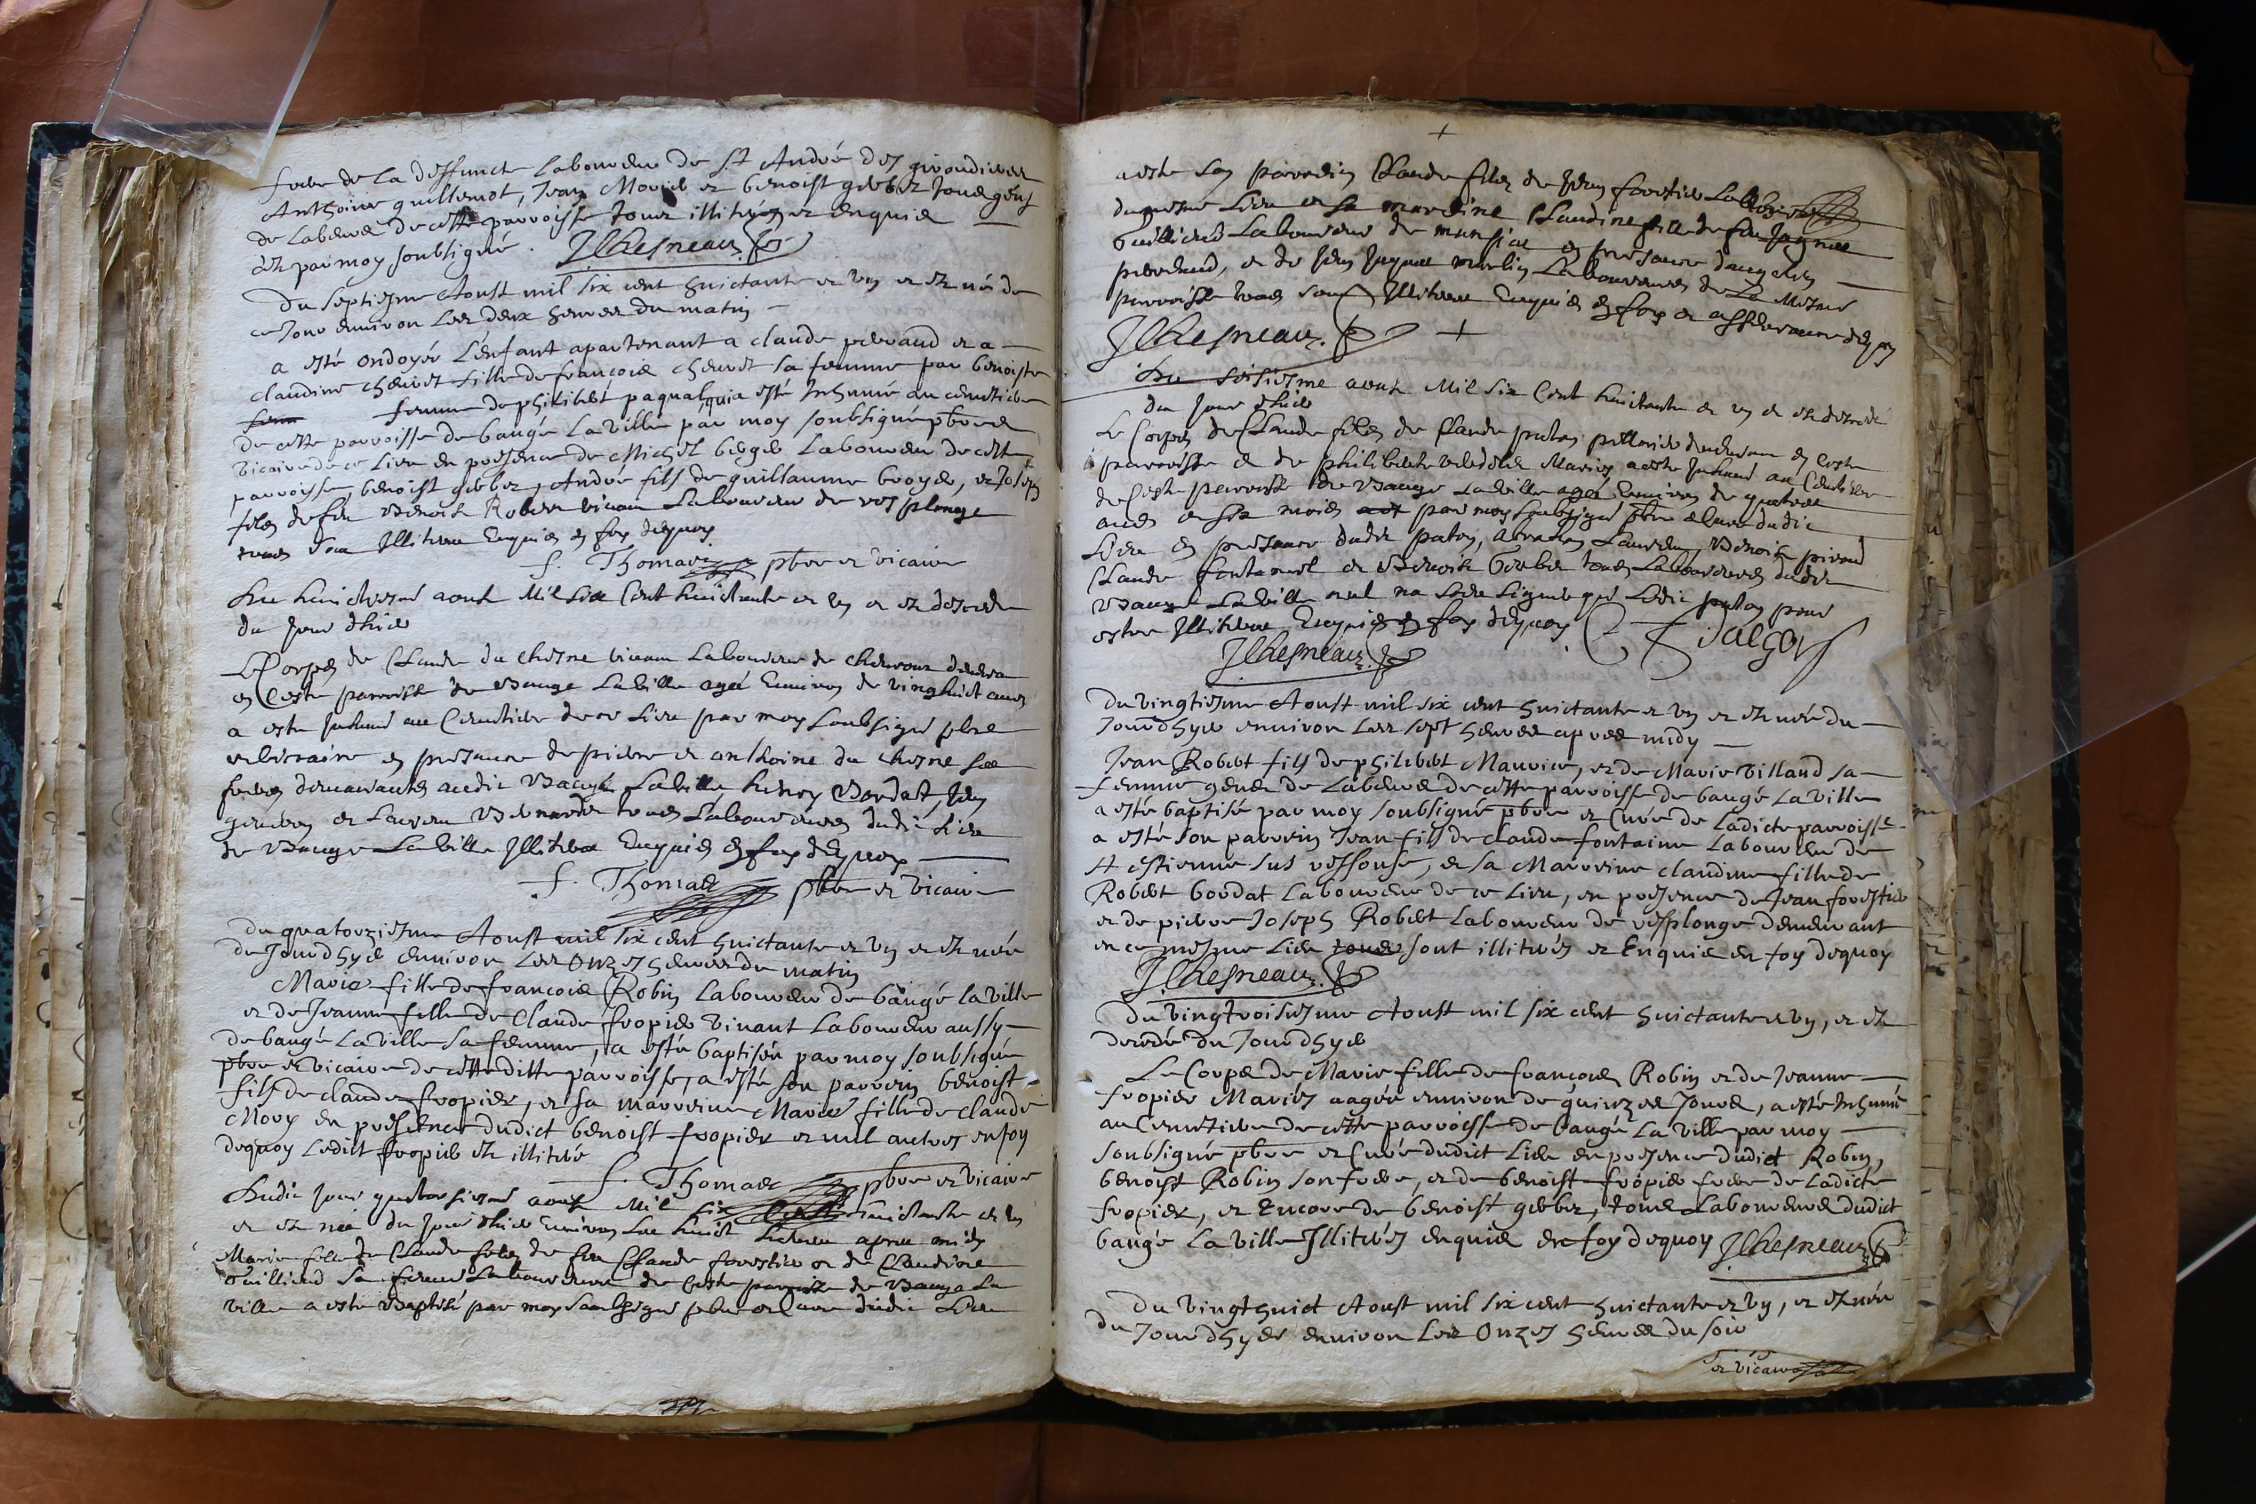 frere de la deffuncte laboureur de St André des giroudieres
Anthoine guillemot, Jean Morieb et benoist greber tous gens
de labeur de cette parroisse tous illiterez et enquis
et par moy soubsigné. JChesneau
du septiesme Aoust mil six cent huictante et un et est né de
ce jour environ les deux heures du matin
a esté ondoyée l'enfant apartenant a claude peraud et a
claudine chevret fille de francois chevret sa femme par benoiste
femme de philibert paqual, qui a esté inhumé au cemetiere
de cette parroisse de baugé la ville par moy soubsigné pbre et
vicaire de ce lieu en presence de Michel berger laboureur de cette
parroisse, benoist greber, André fils de guillaume broyer, et Joseph
filz de feu Benoist Robert vivant laboureur de vesplonge
tous sont Illiteres Enquis en foy dequoy
f. Thomas pbre et vicaire
Du huictiesme aoust Mil six Cent huictante et un et est decede
du jour d'hier
Le Corps de Claude du chesne vivant Laboureur de chevroux demeurant
en Ceste parroisse de Bauge La ville agé Environ de vingt huict ans
a este Inhumé au Cemetiere de ce Lieu par moy soubsigné pbre
et vicaire en presence de pierre et anthoine du chesne ses
freres demeurants audit Baugé La ville henry Bordat, Jean
et Laurent Bernardet tous Laboureurs dudit Lieu
de Bauge La ville Illiteres Enquis en foy dequoy
f. Thomas pbre et vicaire
du quatorziesme Aoust mil six cent huictante et un et est née
de Jourdhyer environ les onzes heures du matin
Marie fille de francois Robin laboureur de baugé la ville
et de Jeanne fille de Claude fropier vivant laboureur aussy
de baugé la ville sa femme, a esté baptisée par moy soubsigné
pbre et vicaire de cette ditte parroisse, a esté son parrein benoist
fils de claude fropier, et sa marreine Marie fille de claude
Mory en presence dudict benoist fropier et nul autres en foy
dequoy ledict fropier est illiteré
f. Thomas pbre et vicaire
Dudit jour quatorsiesme aoust Mil six Cent huictante et un
et est née du jour d'hier Environ les huict heures apres midy
Marie fille de Claude filz de feu Claude forestier et de Claudine
Guilliend sa femme Laboureurs de Ceste parroisse de Bauge La
ville a este Baptisé par moy soubsigné pbre et Cure dudit Lieu
a este son parrein Claude filz de Jean forestier Laboureur
du mesme Lieu et sa mareine Claudine fille de feu Jaque
Guilliend Laboureur de mansiat en presence
peraud, et de Jean Jaque merlin Laboureurs de La mesme
parroisse tous sont Illiteres Enquis en foy et asseurance dequoy
JChesneau
Du seisiesme aoust Mil six Cent huictante et un et est decedé
du jour d'hier
Le Corps de Claude filz de Claude puton demeurant en Ceste
parroisse et de philiberte Mariés a este Inhumé au Cemetiere
de Ceste parroisse de Bauge La ville agé Environ de quatre
ans et six mois par moy soubsigné pbre et Cure dudit
Lieu en presence dudit puton, Laurent, Benoist
Claude fontanel et Benoist Greber tous Laboureurs dudit
Bauge La ville nul ne sait signer que Ledit puton pour
estre Illiteres Enquis en foy dequoy
JChesneau
Du vingtiesme Aoust mil six cent huictante et un et est née du
Jourdhyer environ les sept heures apres midy
Jean Robert fils de philibert Maurice, et de Marie Villand sa
femme gens de labeur de cette parroisse de baugé la ville
a esté baptisé par moy soubsigné pbre et Curé de ladicte parroisse
a esté son parrein Jean fils de claude fontaine laboureur de
St estienne sus ressouse, et sa Marreine claudine fille de
Robert bordat laboureur de ce lieu, en presence de Jean forestier
et de pierre Joseph Robert laboureur de vesplonge demeurant
en ce mesme lieu tous sont illiterés et Enquis en foy dequoy
JChesneau
Du vingtroisiesme Aoust mil six cent huictante et un, et est
decedé du Jourdhyer
Le Corps de Marie fille de francois Robin et de Jeanne
fropier Mariés aagée environ de quinzes Jours, a esté Inhumé
au Cemetiere de cette parroisse de baugé la ville par moy
soubsigné pbre et Curé dudict lieu en presence dudict Robin,
benoist Robin son frere, et de benoist fropier frere de ladicte
fropier, et Encore de benoist greber, tous laboureurs dudict
baugé la ville Illiterés enquis en foy dequoy JChesneau
Du vingthuict Aoust mil six cent huictante et un, et est née
du Jourdhyer environ les Onzes heures du soir
et vicaire